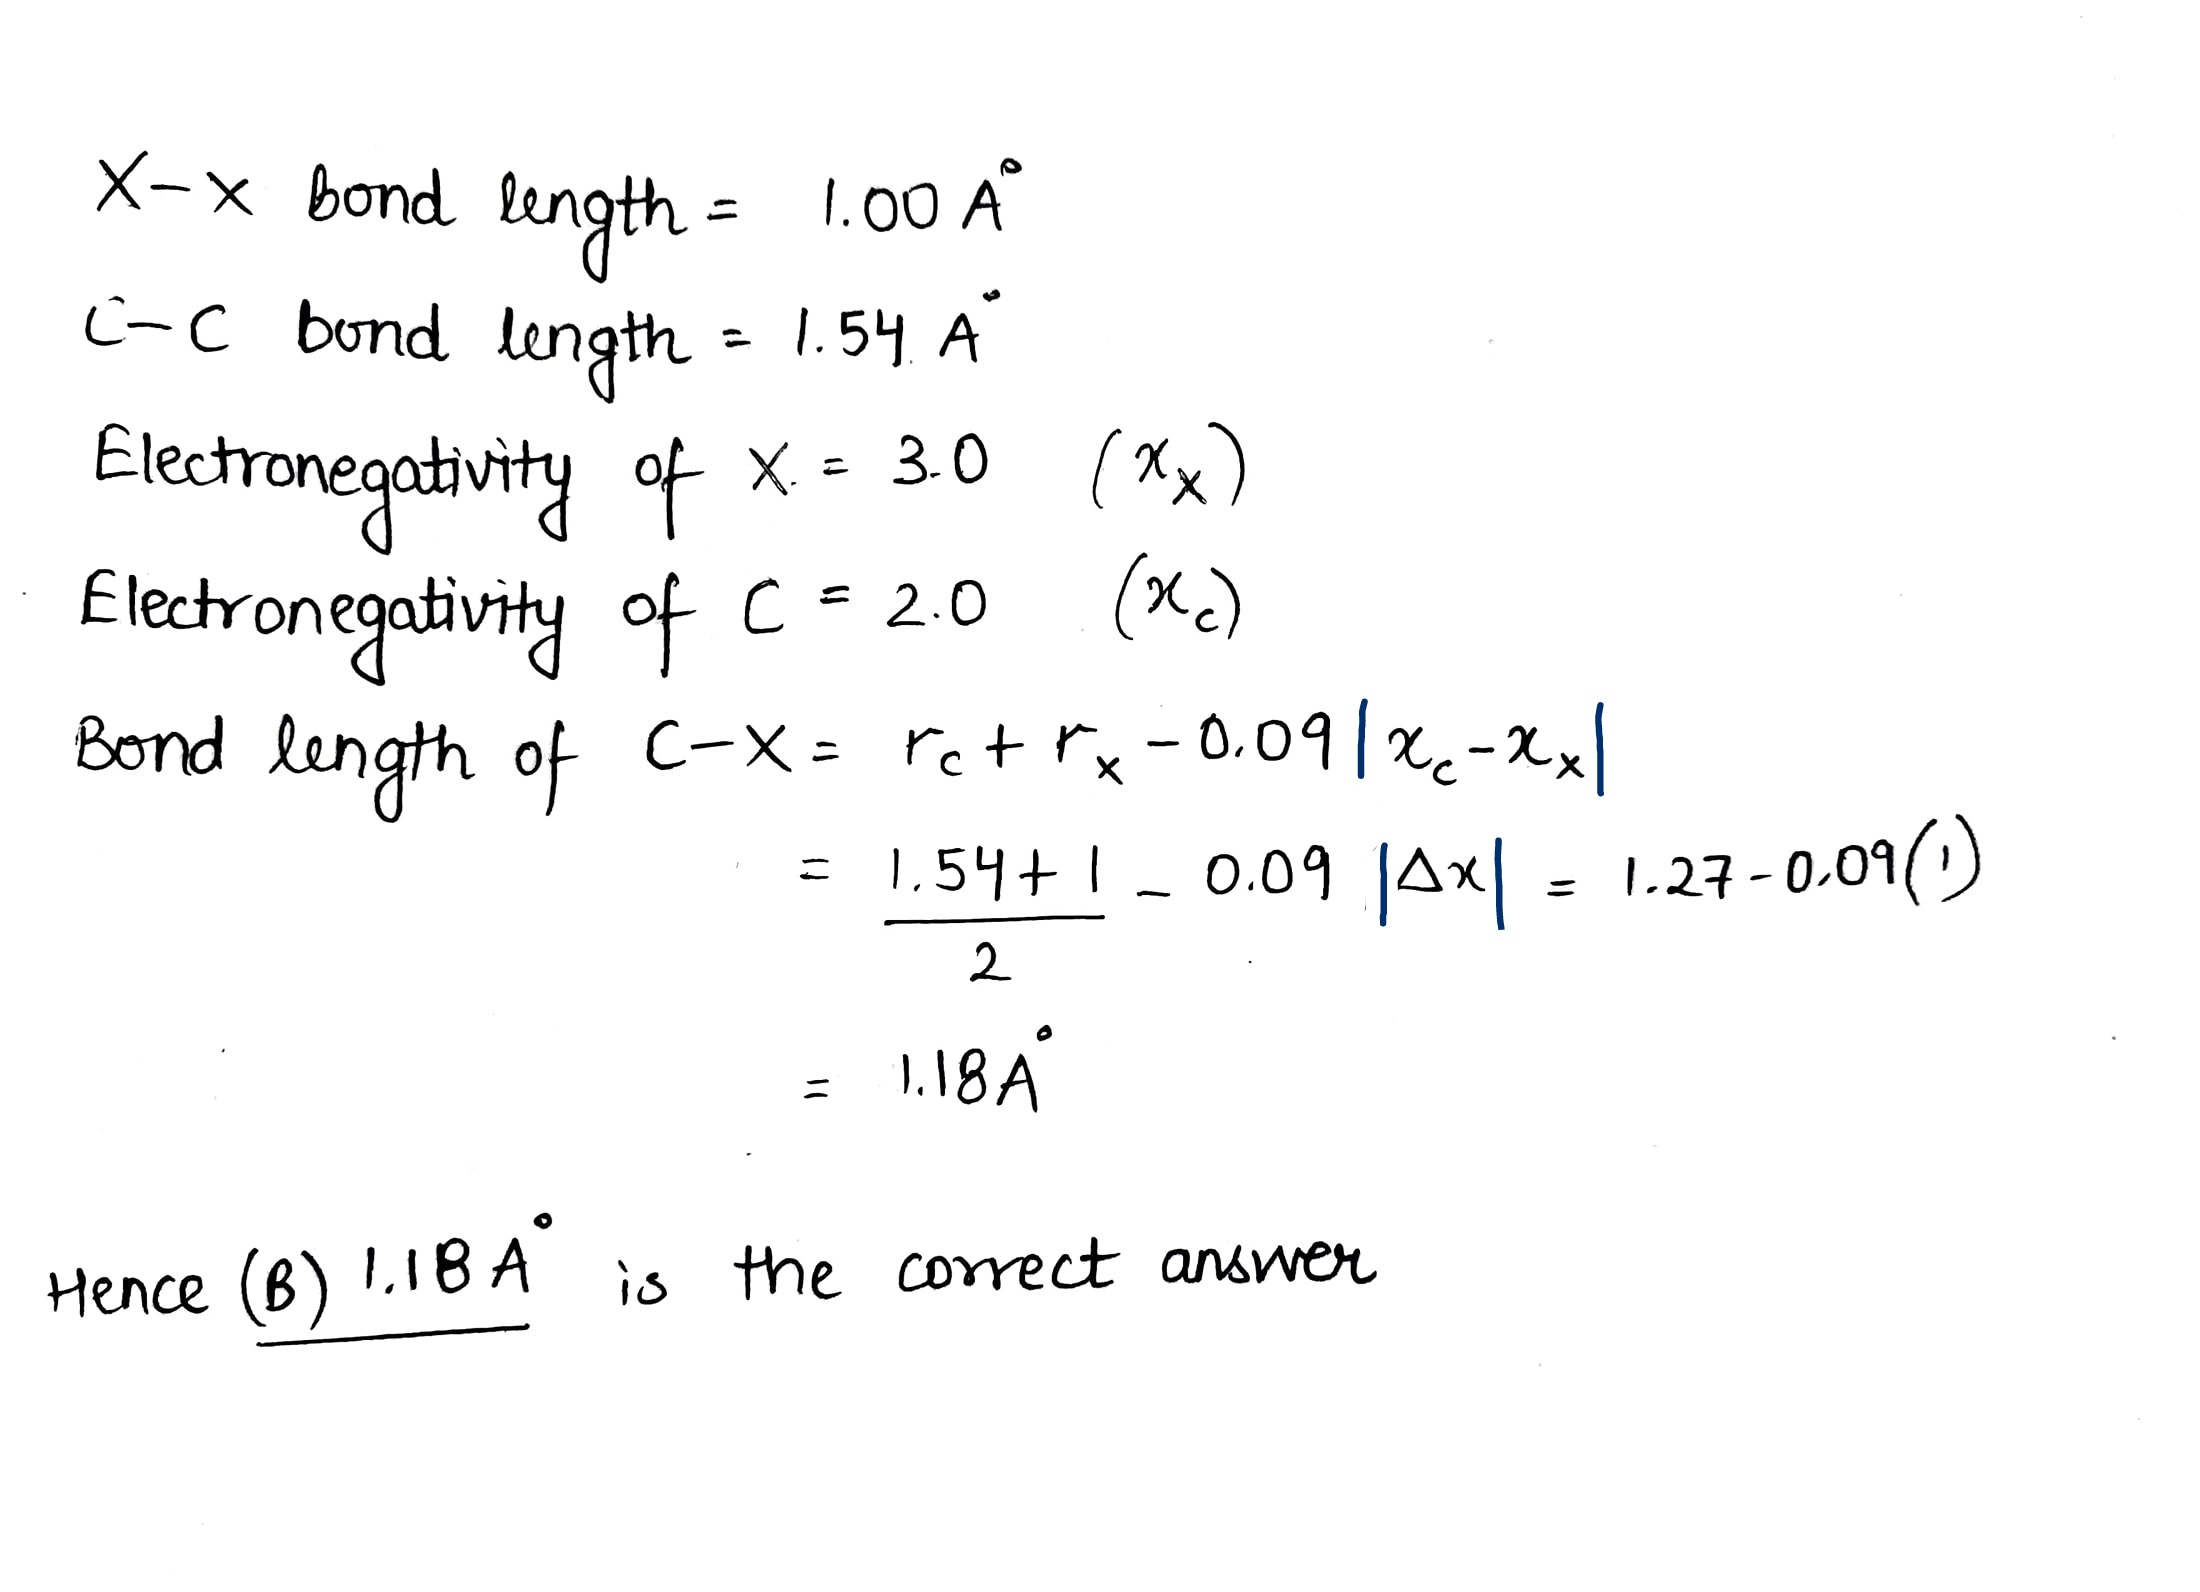 X-X bond length = 1.00 A°
C-C bond length = 1.54 A°
Electronegativity of X = 3.0 (x_X)
Electronegativity of C = 2.0 (x_C)
Bond length of C-X = r_C + r_X - 0.09 |x_C - x_X|
= (1.54 + 1)/2 - 0.09 |Δx| = 1.27 - 0.09(1)
= 1.18 A°
Hence (B) 1.18 A° is the correct answer